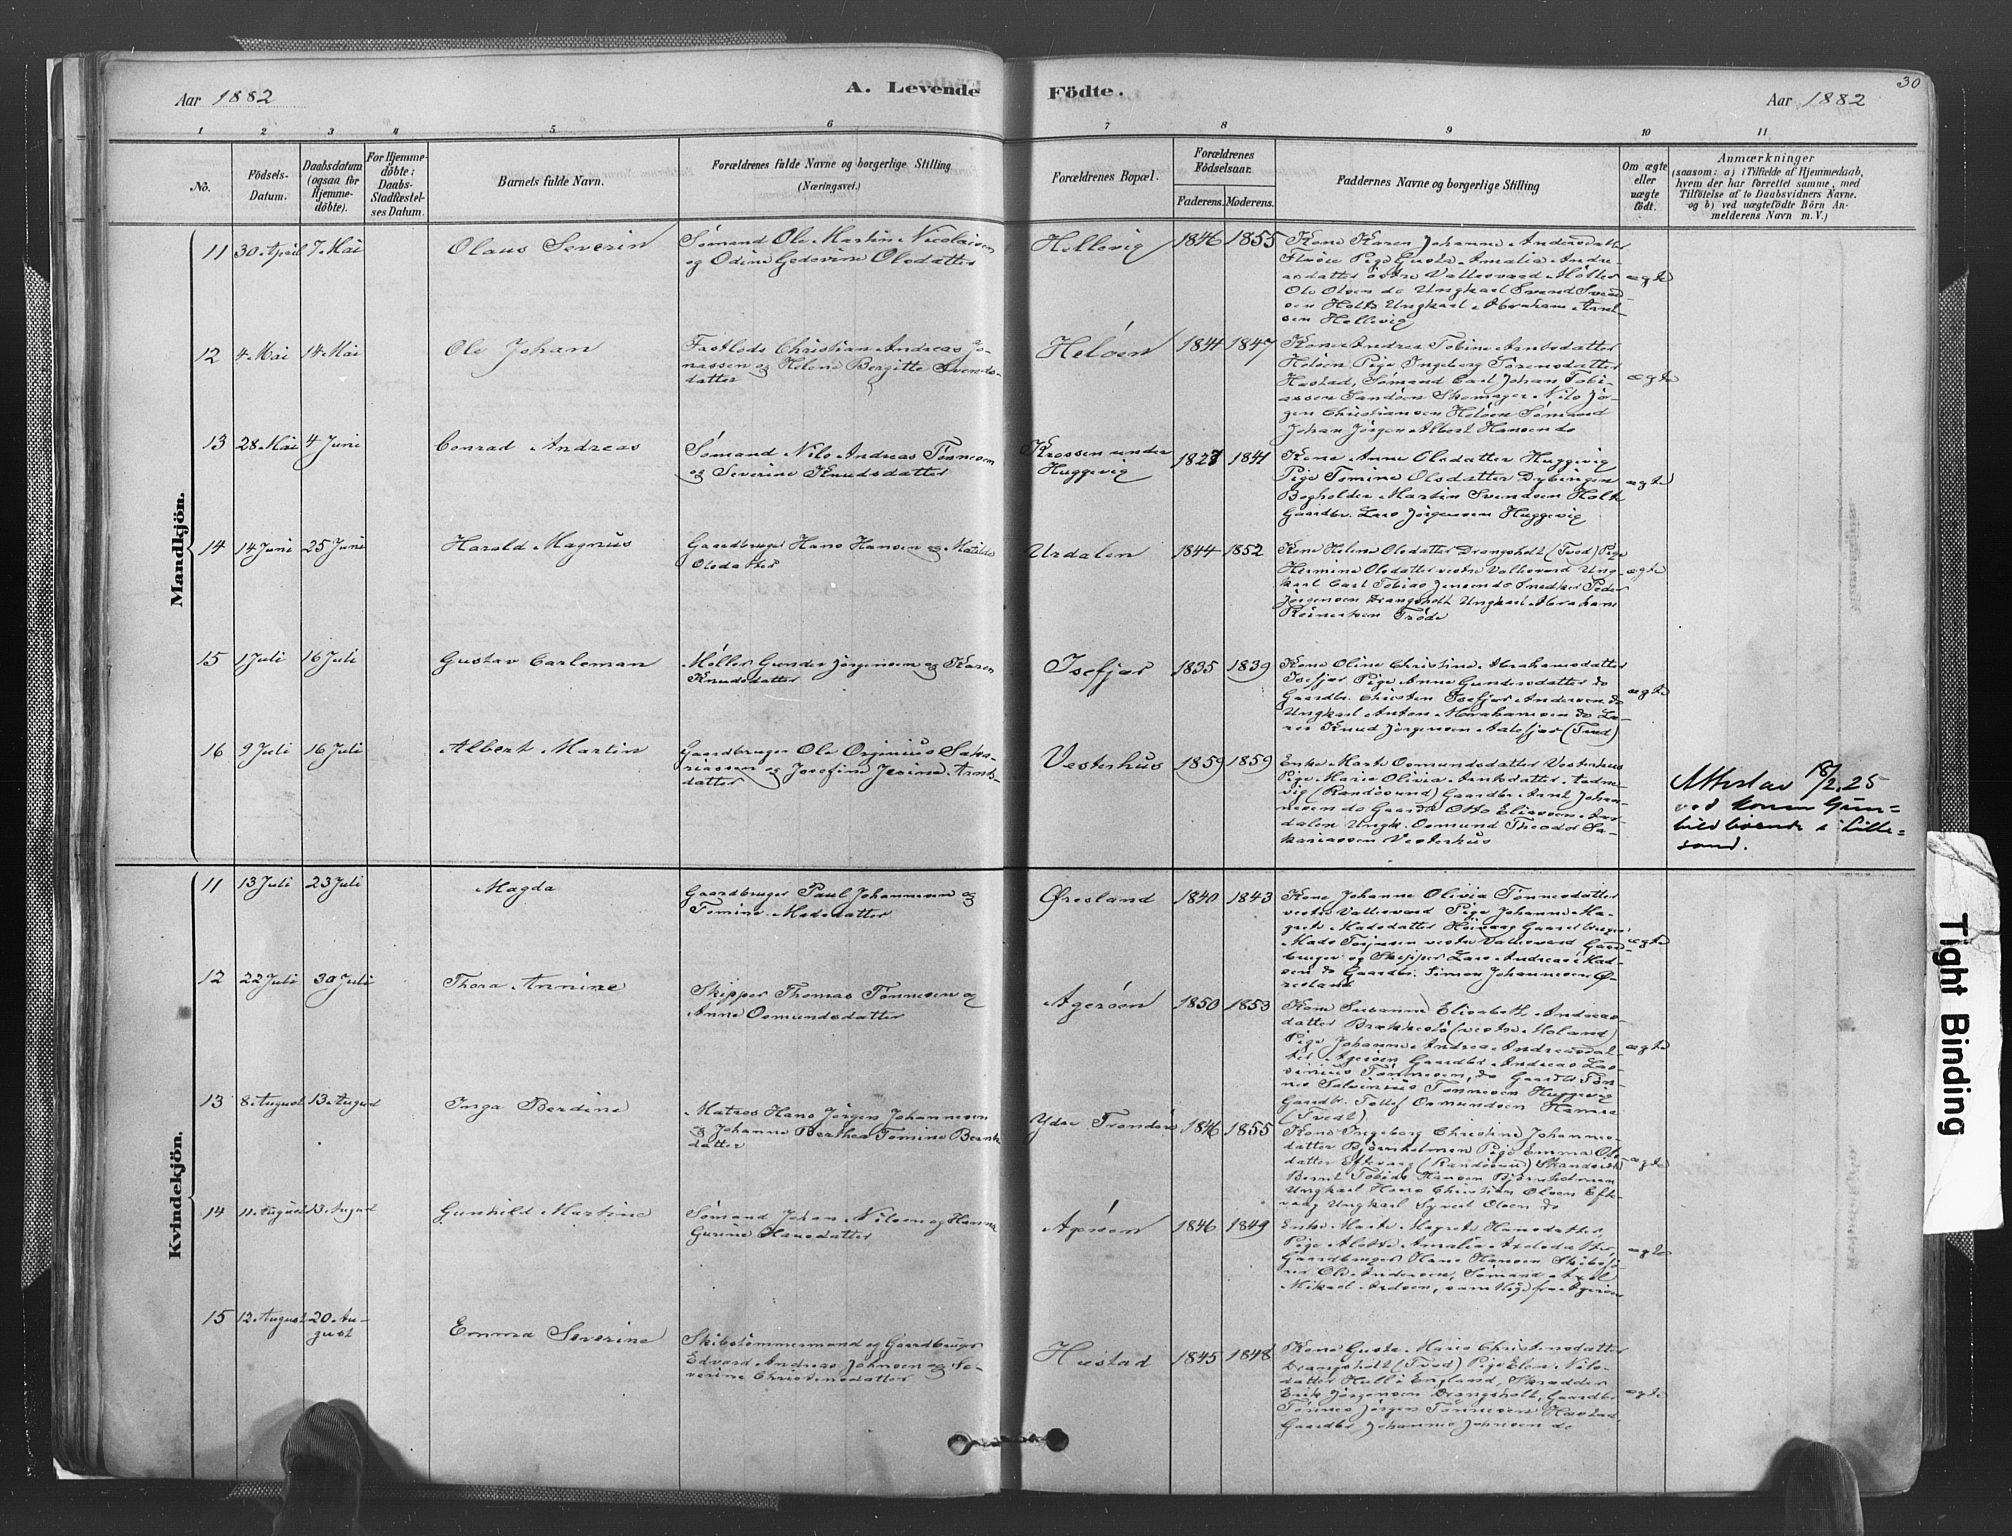 30
Aar 1882
A. Levende Födte.
Aar 1882
1 2 3 4 5 6 7 8 9 10 11
No.
Födsels-Datum.
Daabsdatum (ogsaa for Hjemme-döbte).
For Hjemme-döbte: Daabs-Stadfæstel-ses Datum.
Barnets fulde Navn.
Forældrenes fulde Navne og borgerlige Stilling
(Næringsvei.)
Forældrenes Bopæl.
Forældrenes Födselsaar.
Faderens. Moderens.
Faddernes Navne og borgerlige Stilling
Om ægte eller uægte födt.
Anmærkninger
(saasom: a) i Tilfælde af Hjemmedaab, hvem der har forrettet samme, med Tilföielse af to Daabsvidners Navne. og b) ved uægtefödte Börn An-melderens Navn m. V.)
Mandkjön.
11 30 April 7 Mai Olaus Severin
Sømand Ole Martin Nicolaisen
og Odine Gedevine Olsdatter
Hellevig 1846 1855
Kone Karen Johanne Andersdatter
Pige Gusta Amalia Andre-
asdatter østre Vallesværd Møller
Ole Olsen do Ungkarl Svend Svend-
sen Holte Ungkarl Abraham
sen Hellevig
ægte
12 4 Mai 14 Mai Ole Johan
Christian Andreas Jo-
nassen og Helene Bergitte Svends-
datter
Heløen 1844 1847
Kone Andrea Tobine datter
Heløen Pige Ingeborg Sørensdatter
Hæstad, Sømand Carl Johan Tobi-
assen Sandøen Skomager Nils Jør-
gen Christiansen Heløen Sømand
Johan Jørgen Albert Hansen do
ægte
13 28 Mai 4 Juni Conrad Andreas
Sømand Nils Andreas Tønnesen
og Severine Knudsdatter
Krossen under
Huggevig
1827 1841
Kone Anne Olsdatter Huggevig
Pige Tomine Olsdatter Dybingen
Bogholder Martin Svendsen Holte
Gaardbr. Lars Jørgensen Huggevig
ægte
14 14 Juni 25 Juni Harald Magnus
Gaardbruger Hans Hansen og Matilde
Olsdatter
Urdalen 1844 1852
Kone Helene Olsdatter Drangsholt (Tved) Pige
Hermine Olsdatter vestre Vallesværd Ung-
karl Carl Tobias Jensen do Snedker Peder
Jørgensen Drangsholt Ungkarl Abraham
Reinertsen
ægte
15 1 Juli 16 Juli Gustav Carleman
Møller Gunder Jørgensen og Karen
Knudsdatter
Isefjær 1835 1839
Kone Oline Christine Abrahamsdatter
Isefjær Pige Anne Gundersdatter do
Gaardbr. Christen Isefjær Andersen do
Ungkarl Anton Abrahamsen do
Knud Jørgensen (Tved)
ægte
16 9 Juli 16 Juli Albert Martin
Gaardbruger Ole Saka-
riassen og Josefine Jesine Arnts-
datter
Vesterhus 1859 1859
Enke Marte Osmundsdatter Vesterhus
Pige Marie Olivia Arntsdatter
(Randøsund) Gaardbr. Arnt Johan-
nesen do Otto Eliassen
dalen Ungk. Osmund Theodor Sa-
kariassen Vesterhus
Attestav 18/2.25
ved konen Gun-
hild boende i Lille-
sand.
Kvindekjön.
11 13 Juli 23 Juli Magda
Gaardbruger Paul Johannesen og
Tomine Madsdatter
Øresland 1840 1843
Kone Johanne Olivia Tønnesdatter
vestre Vallesværd Pige Johanne Ma-
grete Madsdatter Gaardbruger
Mads Terjesen vestre Vallesværd Gaard-
bruger og Skipper Lars Andreas Mad-
sen do Gaardbr. Simon Johannesen Ø-
resland
ægte
12 22 Juli 30 Juli Thora Annine
Skipper Thomas Tønnesen og
Anne Osmundsdatter
Agerøen 1850 1853
Kone Susanne Elisabeth Andreas-
datter Brækkestø (vestre Moland)
Pige Johanne Andrea Andreasdat-
ter Agerøen Gaardbr. Andreas
Tønnesen, do Gaardbr. Tøn-
nes Tønnesen Huggevig
Gaardbr. Tollef Osmundsen
(Tvedt)
ægte
13 8 August 13 August Inga Berdine
Matros Hans Jørgen Johannesen
og Johanne Berthea Tomine Bernts
datter
Ydre Trondøe 1846 1855
Kone Ingeborg Christine Johannes-
datter Bjørnholmen Pige Emma Ols-
datter Eftevaag (Randøsund)
Bernt Tobias Hansen Bjørnholmen
Ungkarl Hans Christian Olsen Efte-
vaag Ungkarl Syvert Olsen do
ægte
14 11 August 13 August Gunhild Martine
Sømand Johan Nilsen og Hanna
Gurine Hansdatter
Agerøen 1846 1849
Enke Marte Magrete Hansdatter,
Pige Alette Amalia Axelsdatter,
Gaardbruger Hans Hansen
Ole Andersen, Sømand Axel
Mikael Axelsen, samtlige fra Agerøen
ægte
15 12 August 20 Au-
gust
Emma Severine
Skibstømmermand og Gaardbruger
Edvard Andreas Johnsen og Se-
verine Christensdatter
Hæstad 1845 1848
Kone Gusta Marie Christensdatter
Drangsholt (Tved) Pige Elen Nils-
datter Hull i England, Skrædder
Erik Jørgensen Drangsholt, Gaardbr.
Tønnes Jørgen Tønnesen Hæstad
Gaardbr. Johannes Johnsen do
ægte
Tight Binding